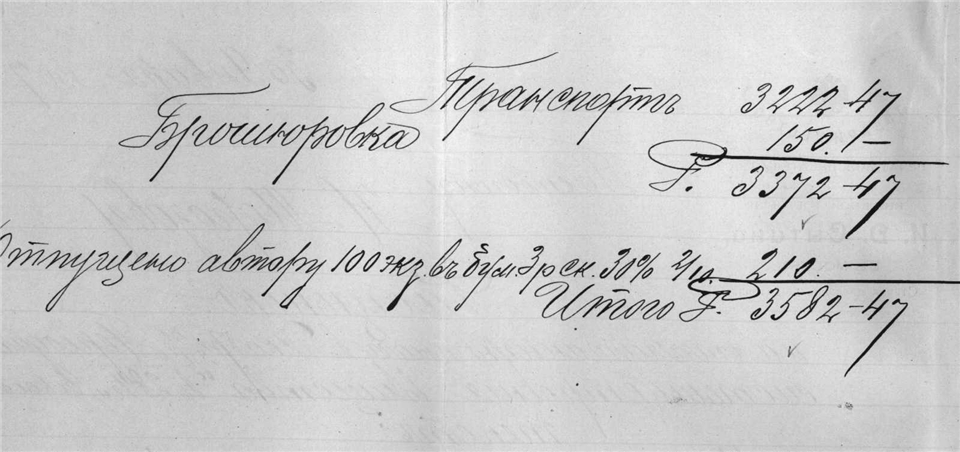 Транспортъ 3222-47
Брошюровка 150.-
Р. 3372-47
Отпущено автору 100 экз. въ бум. 3 р ск. 30% 2/10. 210.-
Итого Р. 3582-47